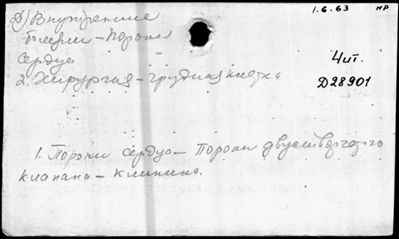 1.6.63 МР
д) Внутренние
болезни - Пороки
сердца
2. Хирургия - грудная клетка
Чит.
D28901
1. Пороки сердца - Пороки двустворчатого
клапана - клиника.